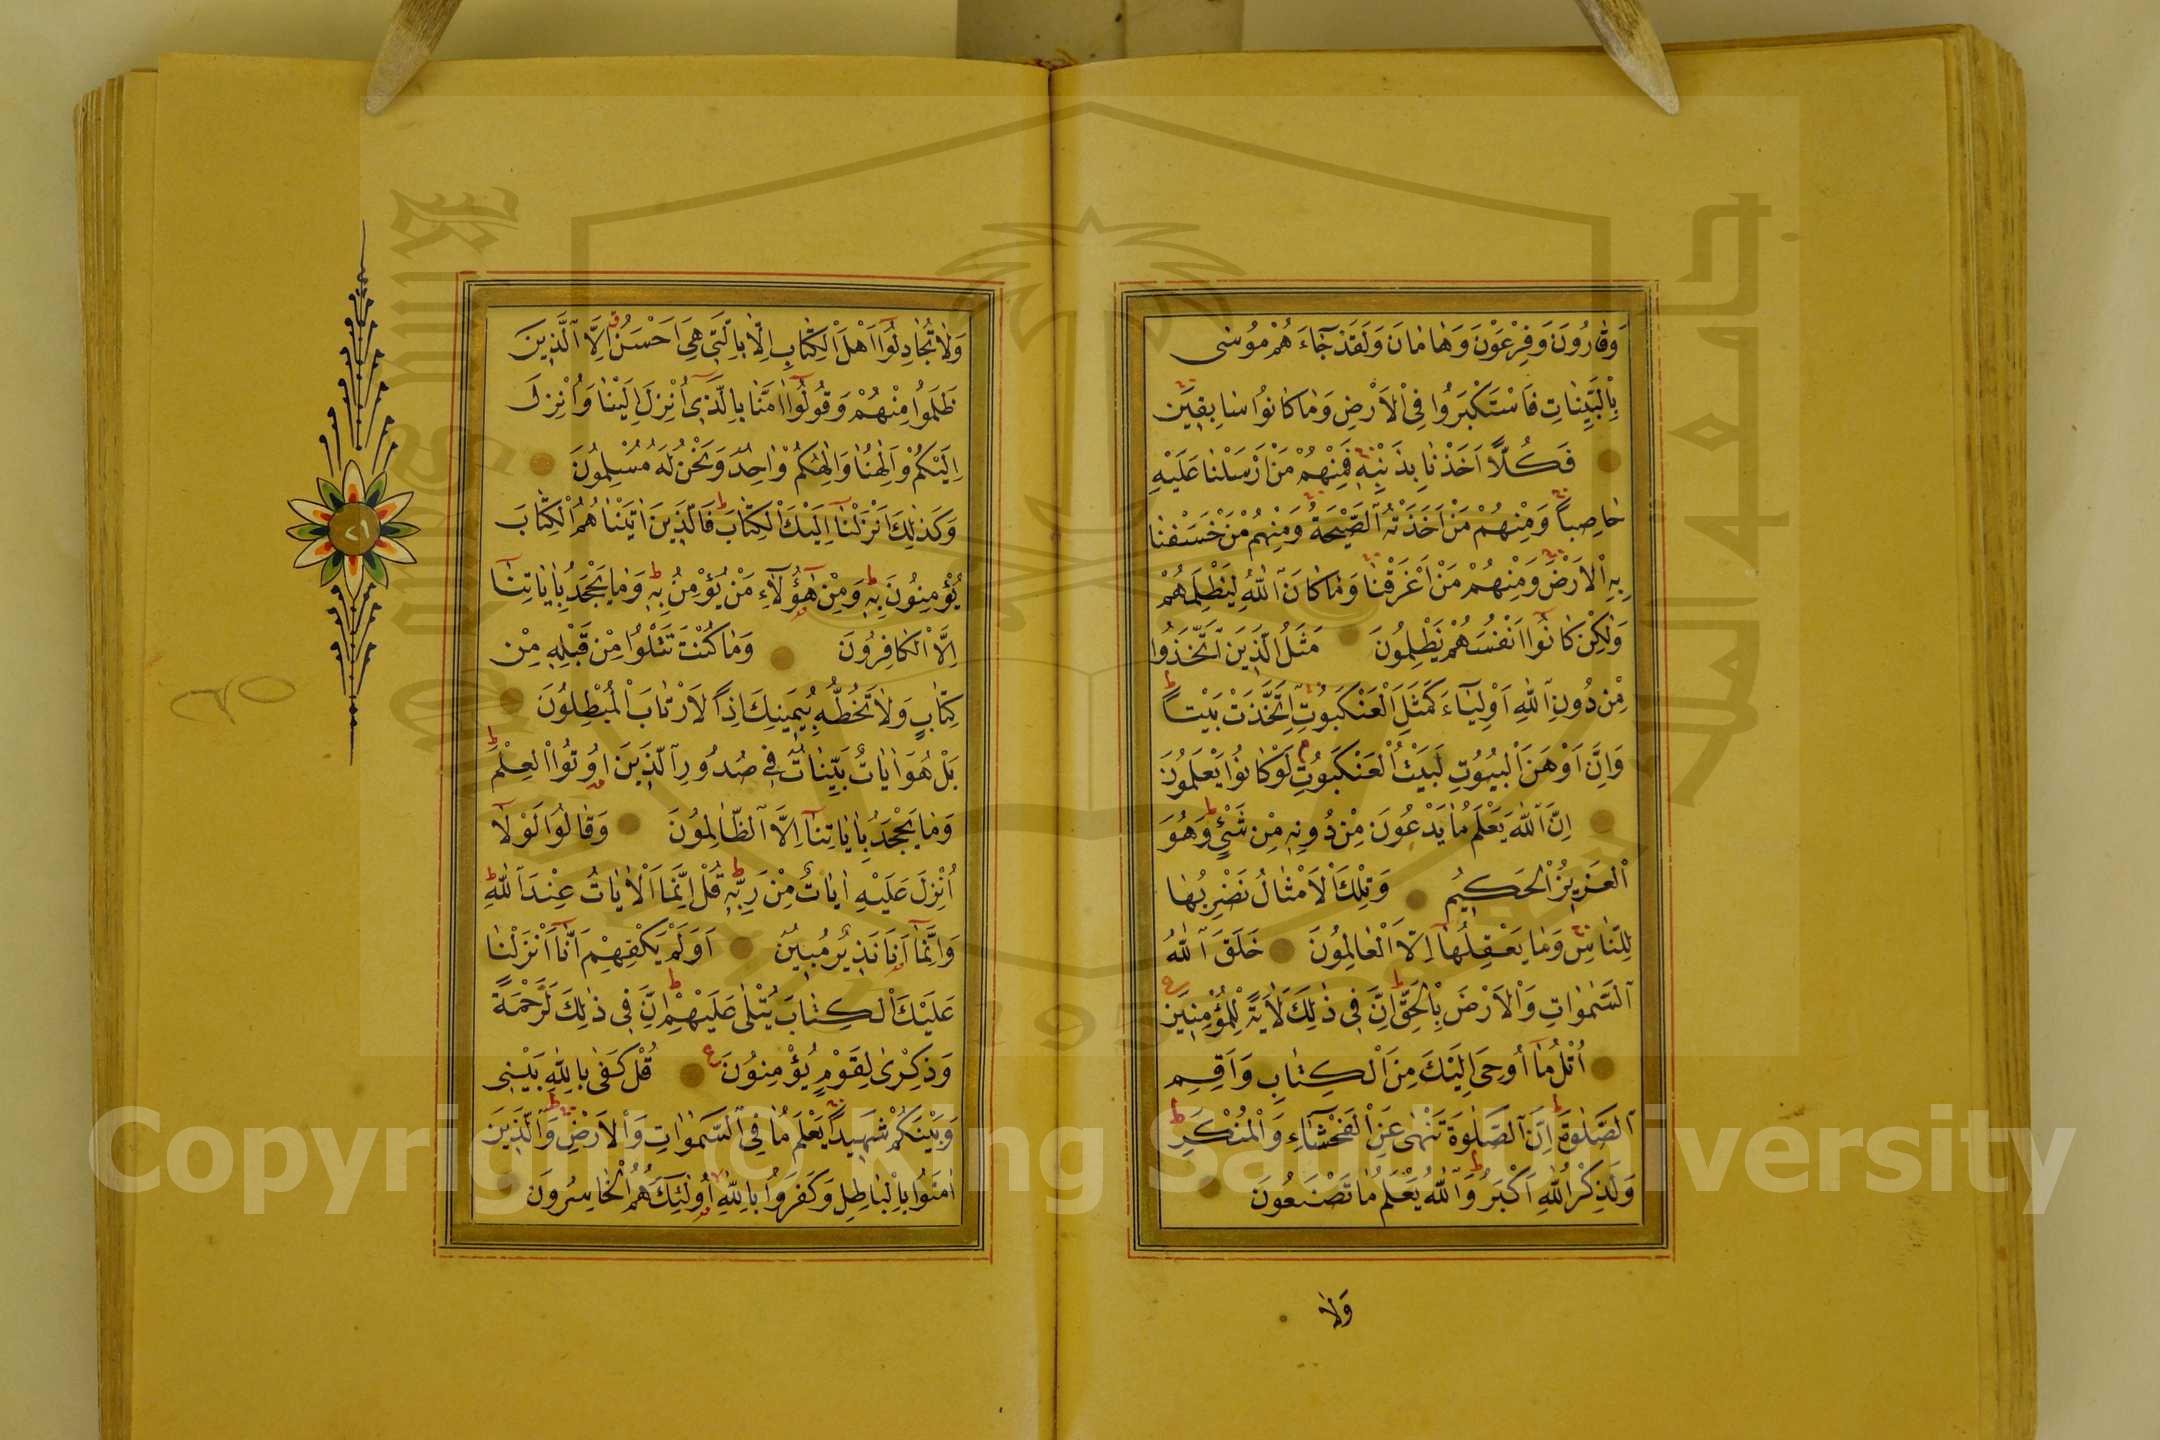 وَقٰارُونَ وَفِرْعَوْنَ وَهٰامٰانَ وَلَقَدْ جٰٓاءَهُمْ مُوسٰى
بِالْبَيِّنٰاتِ فَاسْتَكْبَرُوا فِي الْاَرْضِ وَمٰا كٰانُوا سٰابِقِينَ
فَكُلًّا اَخَذْنٰا بِذَنْبِهِ فَمِنْهُمْ مَنْ اَرْسَلْنٰا عَلَيْهِ
حٰاصِباً وَمِنْهُمْ مَنْ اَخَذَتْهُ الصَّيْحَةُ وَمِنْهُمْ مَنْ خَسَفْنٰا
بِهِ الْاَرْضَ وَمِنْهُمْ مَنْ اَغْرَقْنٰا وَمٰا كٰانَ اللّٰهُ لِيَظْلِمَهُمْ
وَلٰكِنْ كٰانُٓوا اَنْفُسَهُمْ يَظْلِمُونَ مَثَلُ الَّذِينَ اتَّخَذُوا
مِنْ دُونِ اللّٰهِ اَوْلِيَٓاءَ كَمَثَلِ الْعَنْكَبُوتِ اِتَّخَذَتْ بَيْتاً
وَاِنَّ اَوْهَنَ الْبُيُوتِ لَبَيْتُ الْعَنْكَبُوتِ لَوْ كٰانُوا يَعْلَمُونَ
اِنَّ اللّٰهَ يَعْلَمُ مٰا يَدْعُونَ مِنْ دُونِهِ مِنْ شَيْءٍ وَهُوَ
الْعَزِيزُ الْحَكِيمُ وَتِلْكَ الْاَمْثٰالُ نَضْرِبُهٰا
لِلنّٰاسِ وَمٰا يَعْقِلُهٰٓا اِلَّا الْعٰالِمُونَ خَلَقَ اللّٰهُ
السَّمٰوٰاتِ وَالْاَرْضَ بِالْحَقِّ اِنَّ فِي ذٰلِكَ لَاٰيَةً لِلْمُؤْمِنِينَ
اُتْلُ مٰٓا اُوحِيَ اِلَيْكَ مِنَ الْكِتٰابِ وَاَقِمِ
الصَّلٰوةَ اِنَّ الصَّلٰوةَ تَنْهٰى عَنِ الْفَحْشَٓاءِ وَالْمُنْكَرِ
وَلَذِكْرُ اللّٰهِ اَكْبَرُ وَاللّٰهُ يَعْلَمُ مٰا تَصْنَعُونَ
وَلٰا
وَلٰا تُجٰادِلُٓوا اَهْلَ الْكِتٰابِ اِلّٰا بِالَّتِي هِيَ اَحْسَنُ اِلَّا الَّذِينَ
ظَلَمُوا مِنْهُمْ وَقُولُٓوا اٰمَنّٰا بِالَّذِٓي اُنْزِلَ اِلَيْنٰا وَاُنْزِلَ
اِلَيْكُمْ وَاِلٰهُنٰا وَاِلٰهُكُمْ وٰاحِدٌ وَنَحْنُ لَهُ مُسْلِمُونَ
وَكَذٰلِكَ اَنْزَلْنٰٓا اِلَيْكَ الْكِتٰابَ فَالَّذِينَ اٰتَيْنٰاهُمُ الْكِتٰابَ
يُؤْمِنُونَ بِهِ وَمِنْ هٰٓؤُلَٓاءِ مَنْ يُؤْمِنُ بِهِ وَمٰا يَجْحَدُ بِاٰيٰاتِنٰٓا
اِلَّا الْكٰافِرُونَ وَمٰا كُنْتَ تَتْلُوا مِنْ قَبْلِهِ مِنْ
كِتٰابٍ وَلٰا تَخُطُّهُ بِيَمِينِكَ اِذاً لَارْتٰابَ الْمُبْطِلُونَ
بَلْ هُوَ اٰيٰاتٌ بَيِّنٰاتٌ فِي صُدُورِ الَّذِينَ اُوتُوا الْعِلْمَ
وَمٰا يَجْحَدُ بِاٰيٰاتِنٰٓا اِلَّا الظّٰالِمُونَ وَقٰالُوا لَوْلَٓا
اُنْزِلَ عَلَيْهِ اٰيٰاتٌ مِنْ رَبِّهِ قُلْ اِنَّمَا الْاٰيٰاتُ عِنْدَ اللّٰهِ
وَاِنَّمَٓا اَنَا نَذِيرٌ مُبِينٌ اَوَلَمْ يَكْفِهِمْ اَنّٰٓا اَنْزَلْنٰا
عَلَيْكَ الْكِتٰابَ يُتْلٰى عَلَيْهِمْ اِنَّ فِي ذٰلِكَ لَرَحْمَةً
وَذِكْرٰى لِقَوْمٍ يُؤْمِنُونَ قُلْ كَفٰى بِاللّٰهِ بَيْنِي
وَبَيْنَكُمْ شَهِيداً يَعْلَمُ مٰا فِي السَّمٰوٰاتِ وَالْاَرْضِ وَالَّذِينَ
اٰمَنُوا بِالْبٰاطِلِ وَكَفَرُوا بِاللّٰهِ اُولٰٓئِكَ هُمُ الْخٰاسِرُونَ
جامعة الملك سعود
King Saud University
1957
Copyright © King Saud University